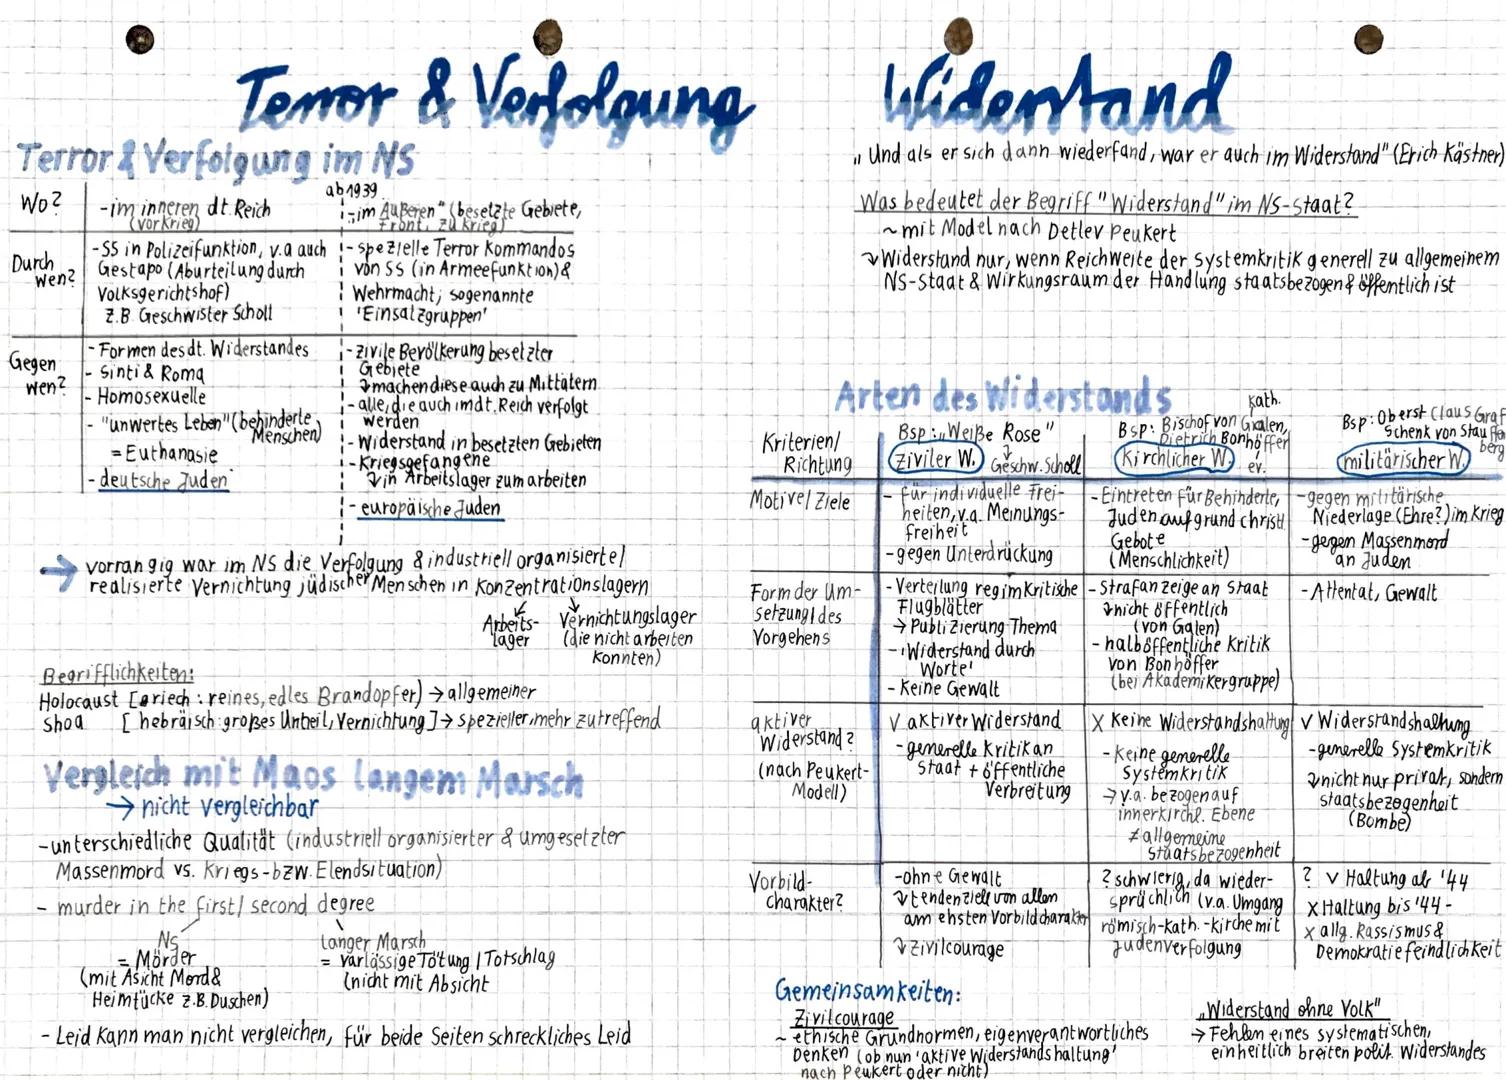 Terror & Verfolgung
Terror & Verfolgung im NS
ab 1939
Wo?
-im inneren dt. Reich
(vor Krieg)
-im Äußeren" (besetzte Gebiete,
Front, zu Krieg)
Durch
wen?
-SS in Polizeifunktion, v.a auch
Gestapo (Aburteilung durch
Volksgerichtshof)
z.B. Geschwister Scholl
- spezielle Terror Kommandos
von SS (in Armeefunktion) &
Wehrmacht; sogenannte
'Einsatzgruppen'
Gegen
wen?
- Formen des dt. Widerstandes
- Sinti & Roma
- Homosexuelle
- "unwertes Leben" (behinderte
Menschen)
= Euthanasie
- deutsche Juden
- zivile Bevölkerung besetzter
Gebiete
↳ machen diese auch zu Mittätern
- alle, die auch im dt. Reich verfolgt
werden
- Widerstand in besetzten Gebieten
- Kriegsgefangene
↳ in Arbeitslager zum arbeiten
- europäische Juden
→ vorrangig war im NS die Verfolgung & industriell organisierte/
realisierte Vernichtung jüdischer Menschen in Konzentrationslagern
Arbeits-
lager
Vernichtungslager
(die nicht arbeiten
konnten)
Begrifflichkeiten:
Holocaust [griech: reines, edles Brandopfer) → allgemeiner
Shoa [hebräisch: großes Unheil, Vernichtung] → spezieller, mehr zutreffend
Vergleich mit Maos langem Marsch
→ nicht vergleichbar
-unterschiedliche Qualität (industriell organisierter & umgesetzter
Massenmord vs. Kriegs- bzw. Elendsituation)
- murder in the first/ second degree
NS
= Mörder
(mit Asicht Mord &
Heimtücke z.B. Duschen)
Langer Marsch
= varlässige Tötung / Totschlag
(nicht mit Absicht
- Leid kann man nicht vergleichen, für beide Seiten schreckliches Leid
Widerstand
„Und als er sich dann wiederfand, war er auch im Widerstand" (Erich Kästner)
Was bedeutet der Begriff "Widerstand" im NS-Staat?
~ mit Model nach Detlev Peukert
↳ Widerstand nur, wenn Reichweite der Systemkritik generell zu allgemeinem
NS-Staat & Wirkungsraum der Handlung staatsbezogen & öffentlich ist
Arten des Widerstands
Kriterien/
Richtung
Bsp: „Weiße Rose"
Ziviler W.
Geschw. Scholl
kath.
Bsp: Bischof von Galen,
Dietrich Bonhöffer
Kirchlicher W.
ev.
Bsp: Oberst Claus Graf
Schenk von Stauffenberg
militärischer W.
Motive/ Ziele
- für individuelle Frei-
heiten, v.a. Meinungs-
freiheit
-gegen Unterdrückung
- Eintreten für Behinderte,
Juden aufgrund christl.
Gebote
(Menschlichkeit)
-gegen militärische
Niederlage (Ehre?) im Krieg
-gegen Massenmord
an Juden
Form der Um-
setzung/des
Vorgehens
- Verteilung regimkritische
Flugblätter
→ Publizierung Thema
- 'Widerstand durch
Worte'
- Keine Gewalt
- Strafanzeige an Staat
↳ nicht öffentlich
(von Galen)
- halböffentliche Kritik
von Bonhöffer
(bei Akademikergruppe)
- Attentat, Gewalt
aktiver
Widerstand?
(nach Peukert-
Modell)
✓ aktiver Widerstand
-generelle Kritik an
Staat + öffentliche
Verbreitung
X Keine Widerstandshaltung
- Keine generelle
Systemkritik
→ v.a. bezogen auf
innerkirchl. Ebene
≠ allgemeine
Staatsbezogenheit
✓ Widerstandshaltung
-generelle Systemkritik
↳ nicht nur privat, sondern
staatsbezogenheit
(Bombe)
Vorbild-
charakter?
-ohne Gewalt
↳ tendenziell von allen
am ehsten Vorbildcharakter
↳ Zivilcourage
? schwierig, da wieder-
sprüchlich (v.a. Umgang
römisch-kath.-Kirche mit
Judenverfolgung
? ✓ Haltung ab '44
X Haltung bis '44 -
X allg. Rassismus &
Demokratiefeindlichkeit
Gemeinsamkeiten:
Zivilcourage
~ ethische Grundnormen, eigenverantwortliches
Denken (ob nun 'aktive Widerstandshaltung'
nach Peukert oder nicht)
„Widerstand ohne Volk"
→ Fehlen eines systematischen,
einheitlich breiten polit. Widerstandes